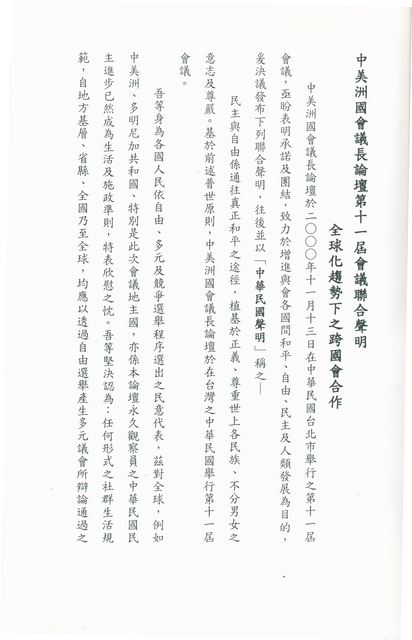 中美洲國會議長論壇第十一屆會議聯合聲明
全球化趨勢下之跨國會合作
中美洲國會議長論壇於二〇〇〇年十一月十三日在中華民國台北市舉行之第十一屆
會議，亟盼表明承諾及團結，致力於增進與會各國間和平、自由、民主及人類發展為目的，
爰決議發布下列聯合聲明，往後並以「中華民國聲明」稱之—
民主與自由係通往真正和平之途徑，植基於正義、尊重世上各民族、不分男女之
意志及尊嚴。基於前述普世原則，中美洲國會議長論壇於在台灣之中華民國舉行第十一屆
會議。
吾等身為各國人民依自由、多元及競爭選舉程序選出之民意代表，茲對全球，例如
中美洲、多明尼加共和國、特別是此次會議地主國，亦係本論壇永久觀察員之中華民國民
主進步已然成為生活及施政準則，特表欣慰之忱。吾等堅決認為：任何形式之社群生活規
範，自地方基層、省縣、全國乃至全球，均應以透過自由選舉產生多元議會所辯論通過之